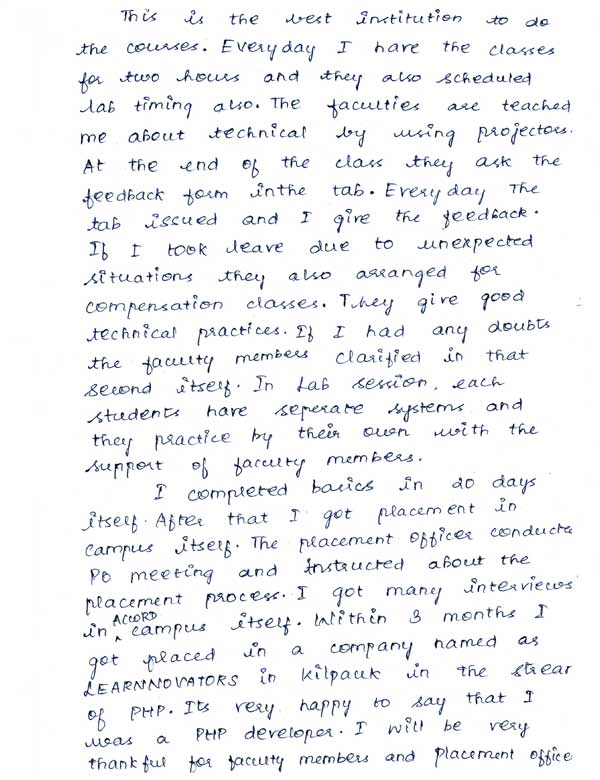 This is the best institution to do
the courses. Everyday I have the classes
for two hours and they also scheduled
lab timing also. The faculties are teached
me about technical by using projectors.
At the end of the class they ask the
feedback form inthe tab. Everyday The
tab issued and I give the feedback.
If I took leave due to unexpected
situations they also arranged for
compensation classes. They give good
technical practices. If I had any doubts
the faculty members clarified in that
second itself. In Lab session, each
students have seperate systems and
they practice by their own with the
support of faculty members.
I completed basics in 20 days
itself. After that I got placement in
campus itself. The placement officer conducts
PO meeting and Instructed about the
placement process. I got many interviews
in ACCORD campus itself. Within 3 months I
got placed in a company named as
LEARNNOVATORS in Kilpauk in the strear
of PHP. Its very happy to say that I
was a PHP developer. I will be very
thankful for faculty members and placement office